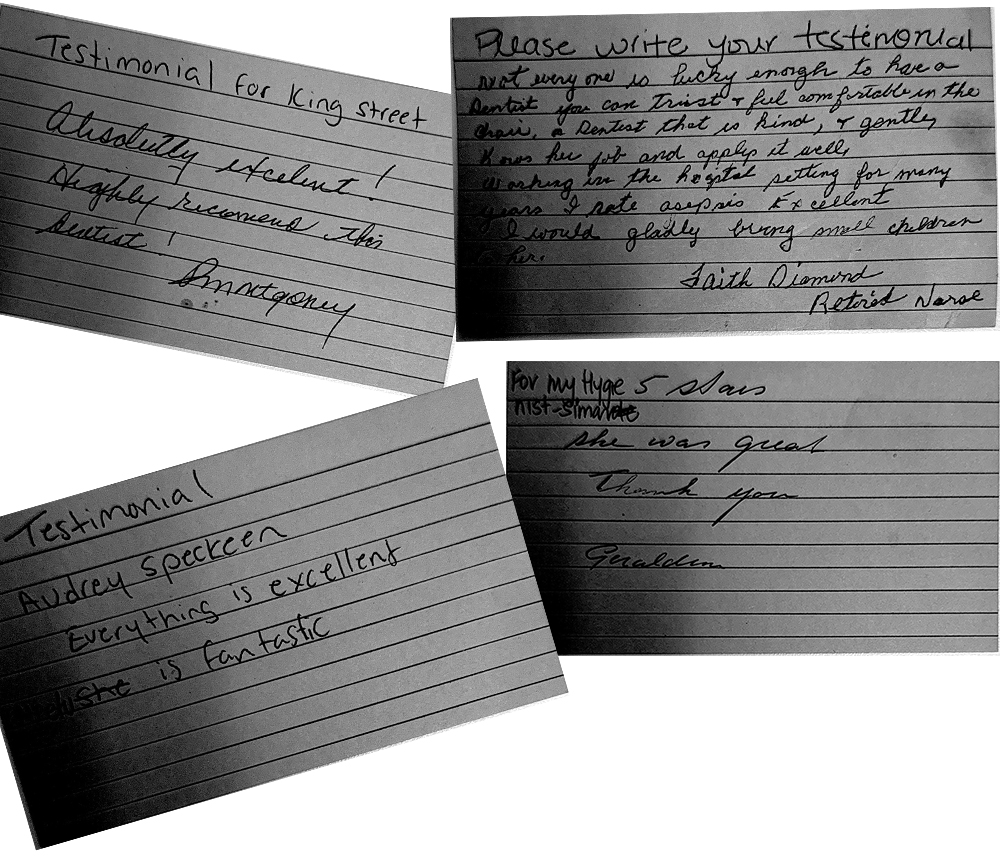 Testimonial for King street
Absolutly excelent!
Highly recomend this
Dentist!
Please write your testimonial
Not every one is lucky enough to have a
Dentist you can trust + feel comfortable in the
chair, a Dentist that is kind, + gentle,
Knows her job and applys it well,
Working in the hospital setting for many
years I rate asepsis Excellent
I would gladly bring small children
to her.
Faith Diamond
Retired Nurse
For my Hyge 5 stars
nist-
she was great
Thank you
Testimonial
Audrey Speckeen
Everything is excellent
is fantastic